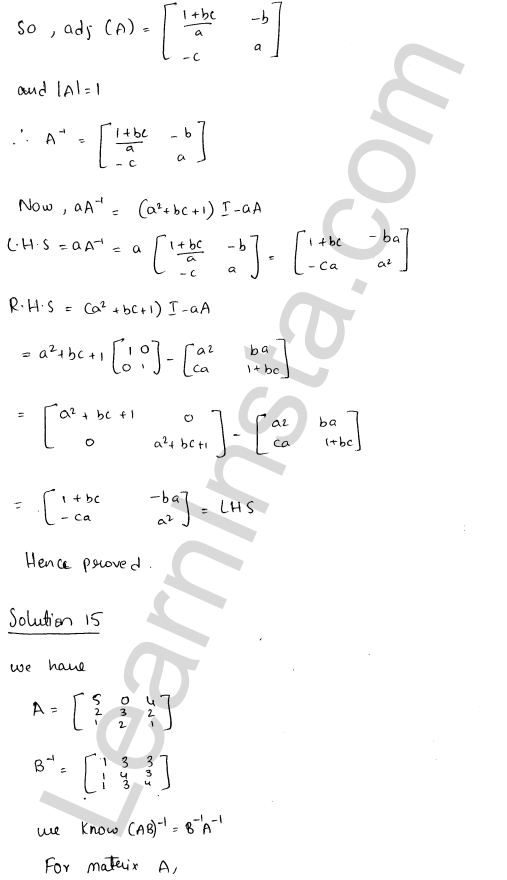 So , adj (A) = [ (1+bc)/a   -b ; -c   a ]
and |A|=1
∴ A⁻¹ = [ (1+bc)/a   -b ; -c   a ]
Now , aA⁻¹ = (a²+bc+1) I-aA
L.H.S = aA⁻¹ = a [ (1+bc)/a   -b ; -c   a ] = [ 1+bc   -ba ; -ca   a² ]
R.H.S = (a²+bc+1) I-aA
= a²+bc+1 [ 1 0 ; 0 1 ] - [ a²   ba ; ca   1+bc ]
= [ a²+bc+1   0 ; 0   a²+bc+1 ] - [ a2   ba ; ca   1+bc ]
= [ 1+bc   -ba ; -ca   a² ] = LHS
Hence proved.
Solution 15
we have
A = [ 5 0 4 ; 2 3 2 ; 1 2 1 ]
B⁻¹ = [ 1 3 3 ; 1 4 3 ; 1 3 4 ]
we know (AB)⁻¹ = B⁻¹A⁻¹
For materix A,
LearnInsta.com